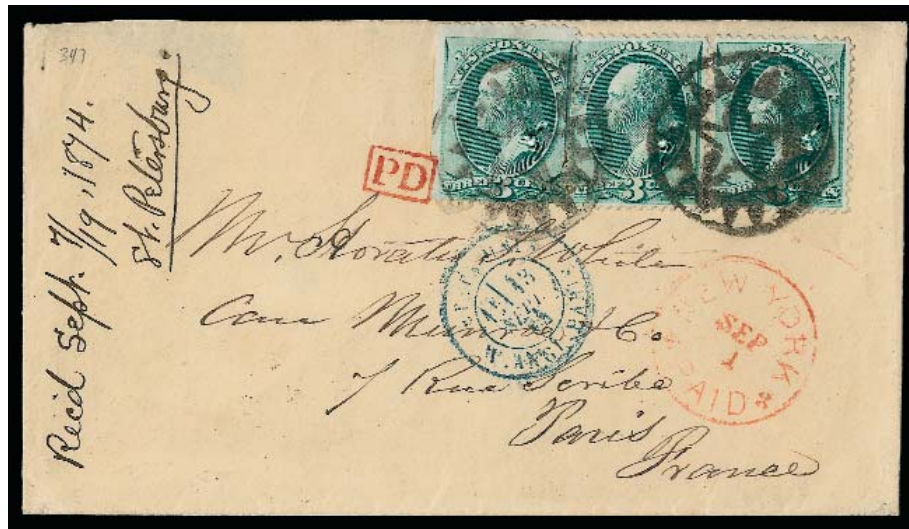 347
Rec'd Sept. 7/19, 1874.
St. Petersburg.
PD
THREE 3 CENTS
3
Mr. Horatio S. White
Care Munroe & Co
7 Rue Scribe
Paris
France
NEW YORK
SEP
1
PAID